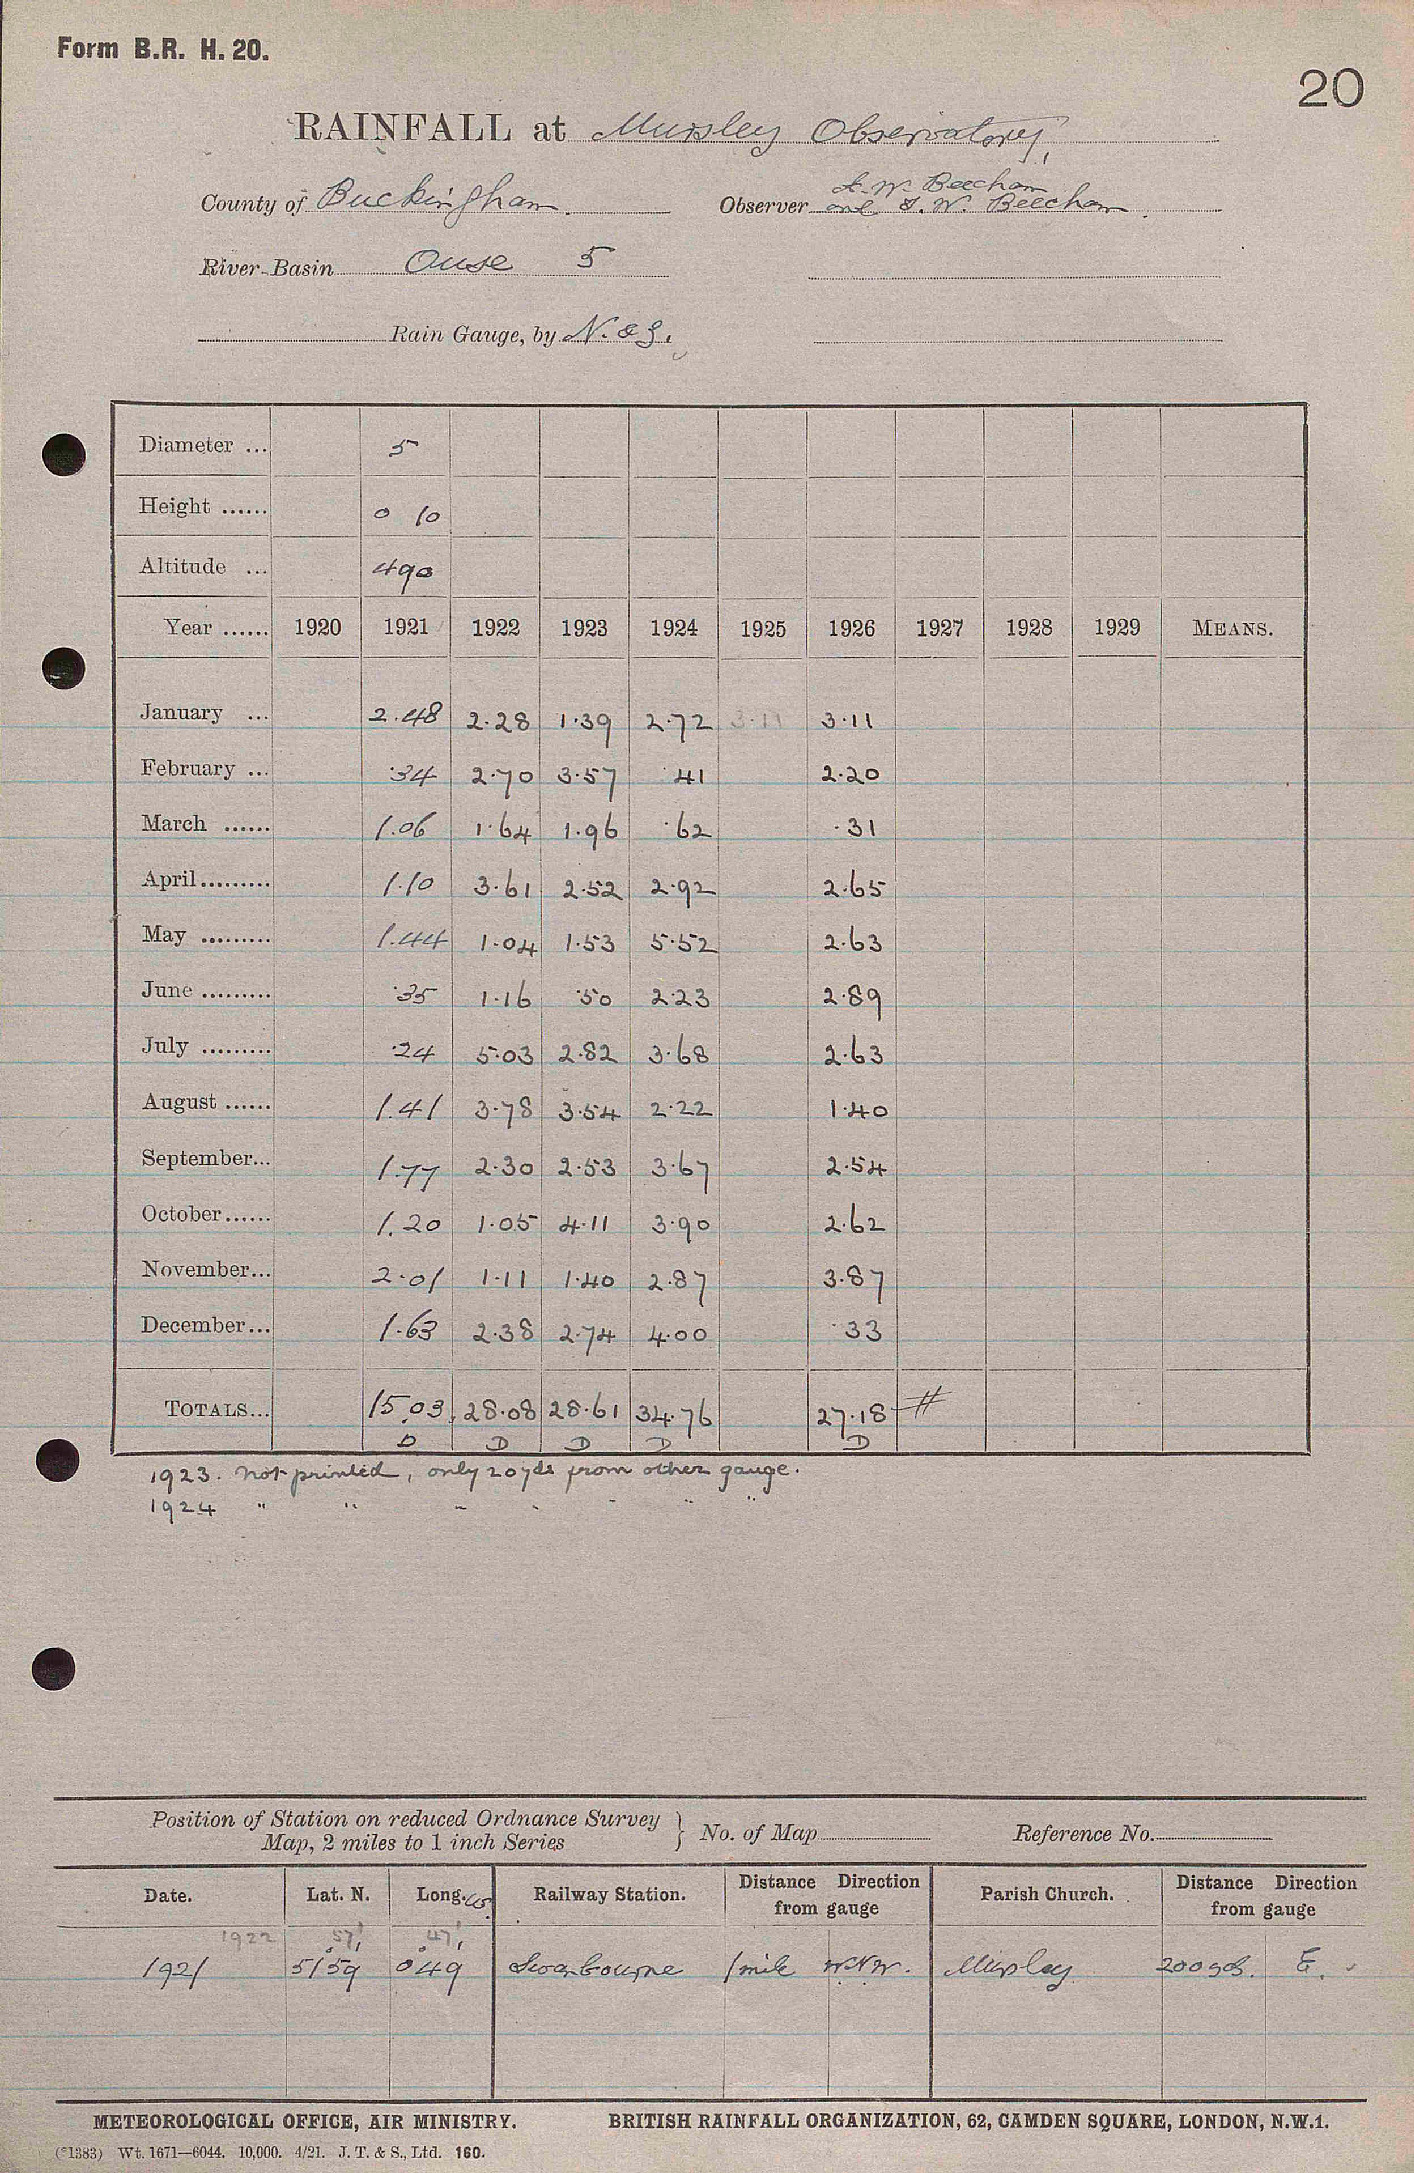 Form B.R. H. 20.
20
RAINFALL at Mursley Observatory,
County of Buckingham.
Observer A. W. Beecham
and S. W. Beecham.
River-Basin Ouse 5
Rain Gauge, by N. & Z.
Diameter ... 5
Height ...... 0 10
Altitude ... 490
Year ...... 1920 1921 1922 1923 1924 1925 1926 1927 1928 1929 MEANS.
January ... 2.48 2.28 1.39 2.72 3.11 3.11
February ... .34 2.70 3.57 .41 2.20
March ...... 1.06 1.64 1.96 .62 .31
April......... 1.10 3.61 2.52 2.92 2.65
May ......... 1.44 1.04 1.53 5.52 2.63
June ......... .35 1.16 .50 2.23 2.89
July ......... .24 5.03 2.82 3.68 2.63
August ...... 1.41 3.78 3.54 2.22 1.40
September... 1.77 2.30 2.53 3.67 2.54
October...... 1.20 1.05 4.11 3.90 2.62
November... 2.01 1.11 1.40 2.87 3.87
December... 1.63 2.38 2.74 4.00 .33
TOTALS... 15.03 28.08 28.61 34.76 27.18 #
D D D D D
1923. not printed, only 20 yds from other gauge.
1924 " " " " " " "
Position of Station on reduced Ordnance Survey
Map, 2 miles to 1 inch Series } No. of Map Reference No.
Date. Lat. N. Long. W. Railway Station. Distance Direction from gauge Parish Church. Distance Direction from gauge
1922 57' 47'
1921 51°59' 0°49' Swanbourne 1 mile WNW. Mursley 200 yds. E.
METEOROLOGICAL OFFICE, AIR MINISTRY. BRITISH RAINFALL ORGANIZATION, 62, CAMDEN SQUARE, LONDON, N.W.1.
(*1383) Wt. 1671—6044. 10,000. 4/21. J. T. & S., Ltd. 160.